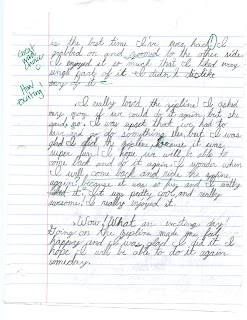 is the best time I've ever had! I
grabbed on and zoomed to the other side.
I enjoyed it so much that I liked every
single part of it. I didn't dislike
any of it.
How exciting
I really loved the zipline! I asked
my mom if we could do it again, but she
said, no. I was upset that we had to
leave and go do something else, but I was
glad I did the zipline, because it was
super fun. I hope we will be able to
come back and do it again. I wonder when
I will come back and ride the zipline
again because it was so fun and I really
it. It was pretty cool and really
awesome. I really enjoyed it.
Wow! What an exciting day!
Going on the zipline made me feel
happy and I was glad I did it. I
hope I will be able to do it again
someday.